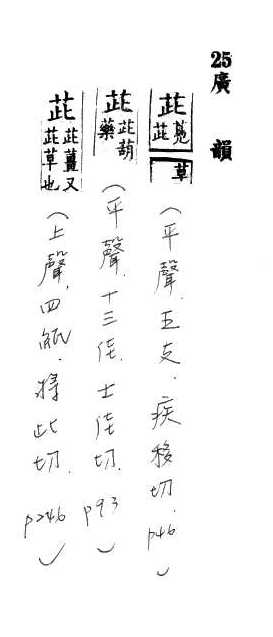 25廣韻
茈 鳧茈草（平聲.五支.疾移切.p46）
茈 茈葫藥（平聲.十三佳.士佳切.p93）
茈 茈薑又茈草也（上聲.四紙.將此切.p246）